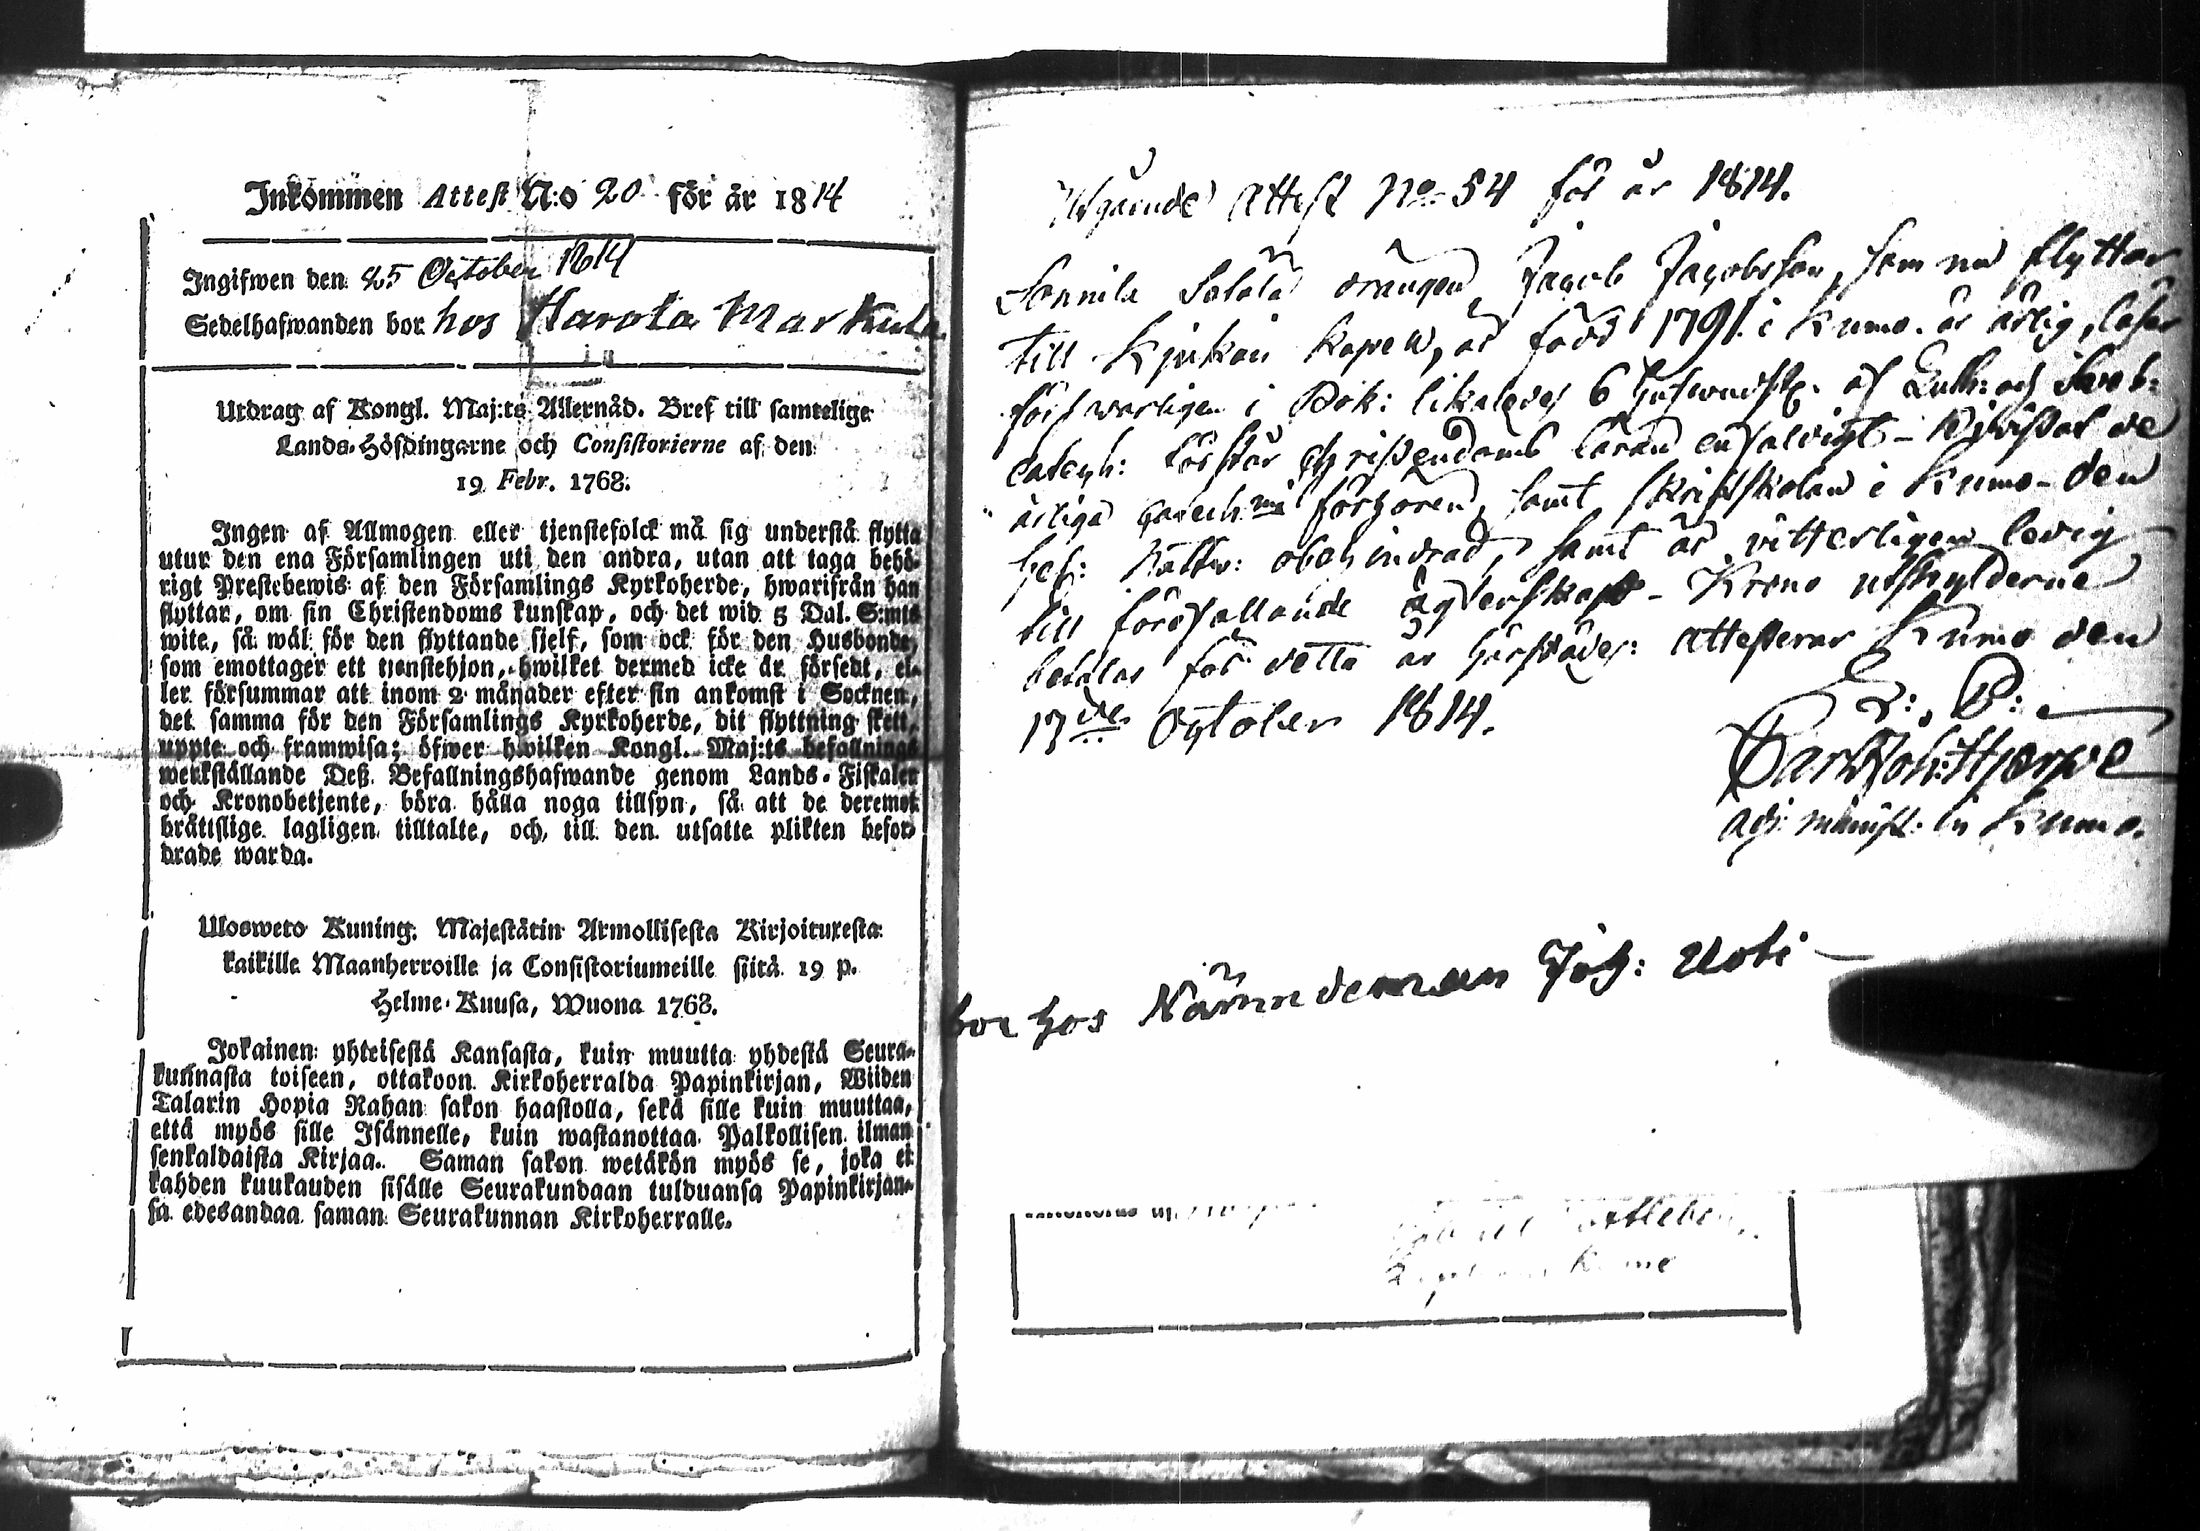 Inkommen Attest N:o 20 för år 1814
Ingifwen den 25 October 1814
Sedelhafwanden bor hos Harola Markula
Utdrag af Kongl. Maj:ts Allernåd. Bref till samtelige
Lands-Höfdingarne och Consistorierne af den
19 Febr. 1768.
Ingen af Allmogen eller tjenstefolck må sig understå flytta
utur den ena Församlingen uti den andra, utan att taga behö-
rigt Prestebewis af den Församlings Kyrkoherde, hwarifrån han
flyttar, om sin Christendoms kunskap, och det wid 5 Dal. S:mts
wite, så wäl för den flyttande sjelf, som ock för den Husbonde,
som emottager ett tjenstehjon, hwilket dermed icke är försedt, el-
ler försummar att inom 2 månader efter sin ankomst i Socknen,
det samma för den Församlings Kyrkoherde, dit flyttning skett,
uppte och framwisa; öfwer hwilken Kongl. Maj:ts befallnings
werkställande Deß Befallningshafwande genom Lands-Fiskaler
och Kronobetjente, böra hålla noga tillsyn, så att de deremot
bråttslige lagligen tilltalte, och till den utsatte plikten befor-
drade warda.
Ulosweto Kuning. Majestätin Armollisesta Kirjoituxesta
kaikille Maanherroille ja Consistoriumeille siitä 19 p.
Helme-Kuusa, Wuona 1768.
Jokainen yhteisestä Kansasta, kuin muutta yhdestä Seura-
kunnasta toiseen, ottakoon Kirkoherralda Papinkirjan, Wiiden
Talarin Hopia Rahan sakon haastolla, sekä sille kuin muuttaa,
että myös sille Isännelle, kuin wastanottaa Palkollisen ilman
senkaldaista Kirjaa. Saman sakon wetäkön myös se, joka ei
kahden kuukauden sisälle Seurakundaan tulduansa Papinkirjan-
sa edesandaa saman Seurakunnan Kirkoherralle.
Utgående Attest No 54 för år 1814.
Sonnila drängen Jacob Jacobsson, som nu flyttar
till Kjukais Kapell, är född 1791 i Kumo. är ärlig, läser
förswarligen i Bok: likaledes 6 Hufwudst. af Luth: och Sweb:
catech: förstår Christendoms läran enfaldigt - Bewistat de
årliga förhören, samt skriftskolan i Kumo - den
Hel: Nattw: obehindrad, samt är witterligen ledig
till förefallande ägtenskap - Krono utskylderne
betalas för detta år härstädes: attesterar Kumo den
17de October 1814.
Carl Joh: Hjerpe
adj. minist. in Kumo.
bor hos Nämndeman Joh: Uoti